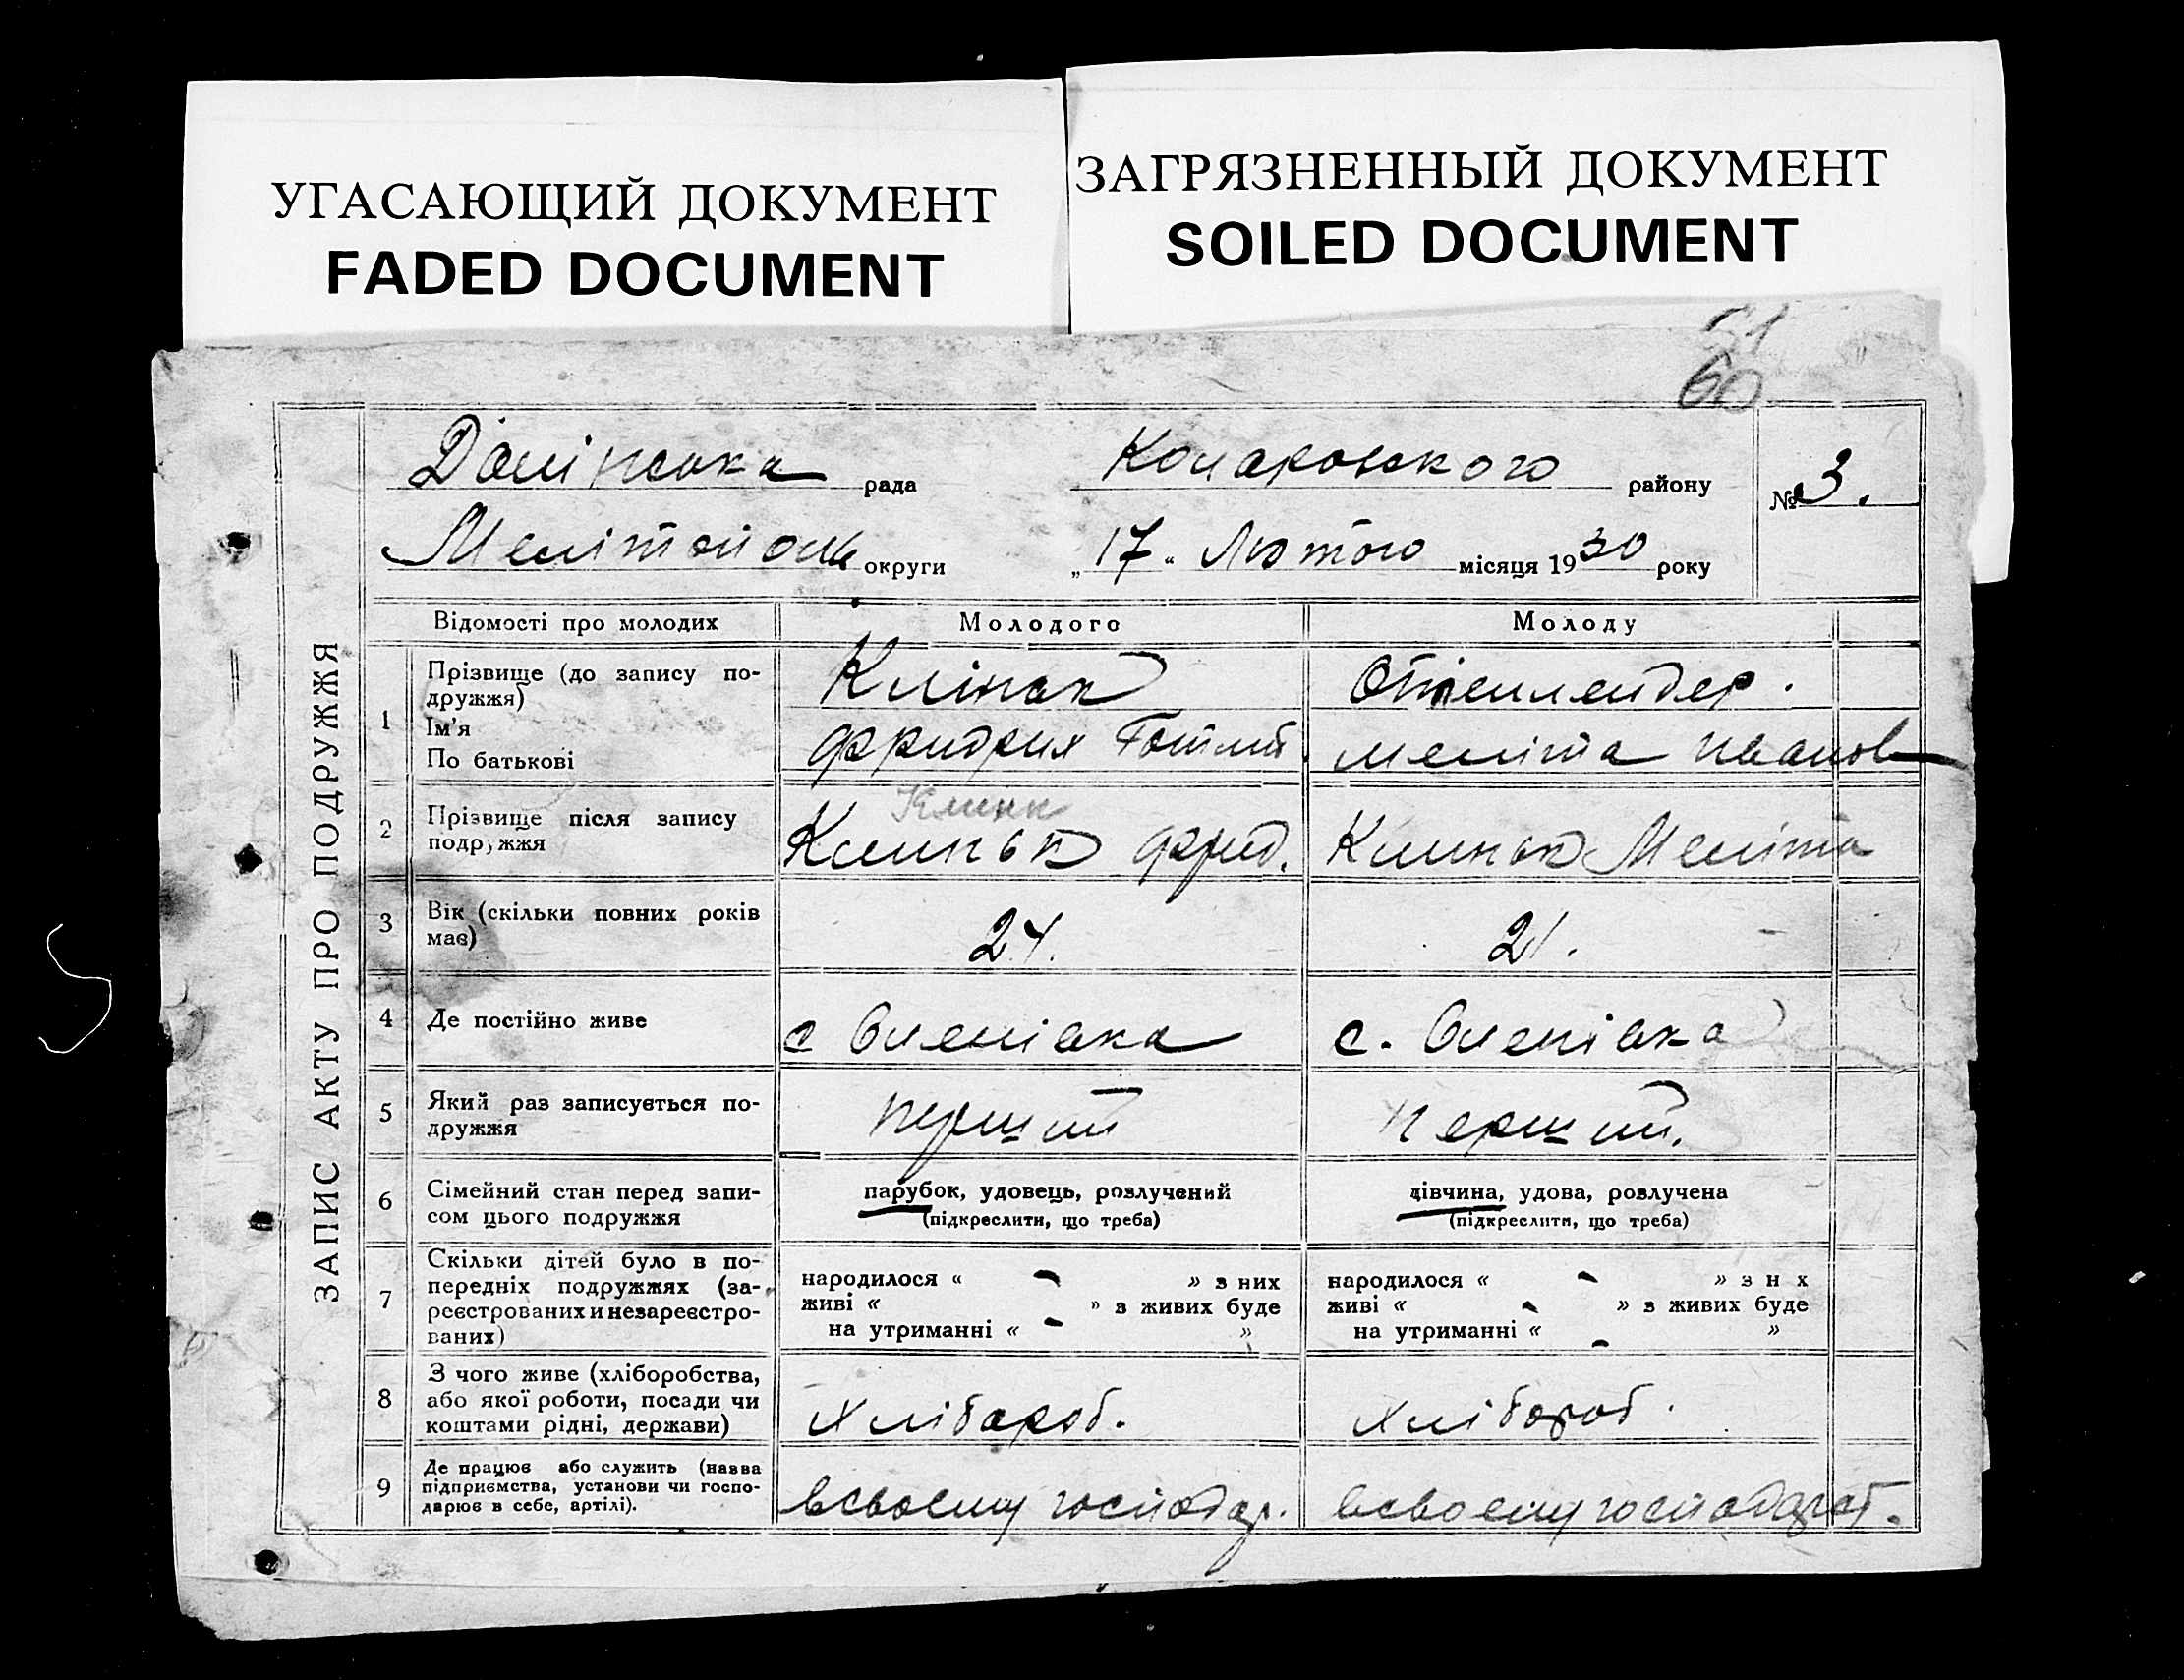 УГАСАЮЩИЙ ДОКУМЕНТ
FADED DOCUMENT
ЗАГРЯЗНЕННЫЙ ДОКУМЕНТ
SOILED DOCUMENT
51
60
ЗАПИС АКТУ ПРО ПОДРУЖЖЯ
рада
району
№ 3.
округи
„17“ Лютого місяця 1930 року
Відомості про молодих
Молодого
Молоду
1
Прізвище (до запису по-
дружжя)
Ім'я
По батькові
Фридрих Готліб.
Меліта Иванов
2
Прізвище після запису
подружжя
Клинк
Клиньк Фрид.
Клиньк Меліта
3
Вік (скільки повних років
має)
24.
21.
4
Де постійно живе
с Оленівка
с. Оленівка
5
Який раз записується по-
дружжя
перший
перший.
6
Сімейний стан перед запи-
сом цього подружжя
парубок, удовець, розлучений
(підкреслити, що треба)
дівчина, удова, розлучена
(підкреслити, що треба)
7
Скільки дітей було в по-
передніх подружжях (за-
реєстрованих и незареєстро-
ваних)
народилося « - » з них
живі « » з живих буде
на утриманні « - »
народилося « - » з н х
живі « - » з живих буде
на утриманні « - »
8
З чого живе (хліборобства,
або якої роботи, посади чи
коштами рідні, держави)
Хлібароб.
Хлібороб.
9
Де працює або служить (назва
підприємства, установи чи госпо-
дарює в себе, артілі).
всвоему господар.
всвоему господарст.